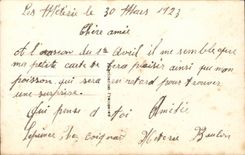 Les Métairie le 30 Mars 1923
Chère amie
A l'occasion du 1er Avril il me semble que
ma petite carte te fera plaisir ainsi que mon
poisson qui sera en retard pour trouver
une surprise.
Qui pense à toi Amitié
chez Coignac